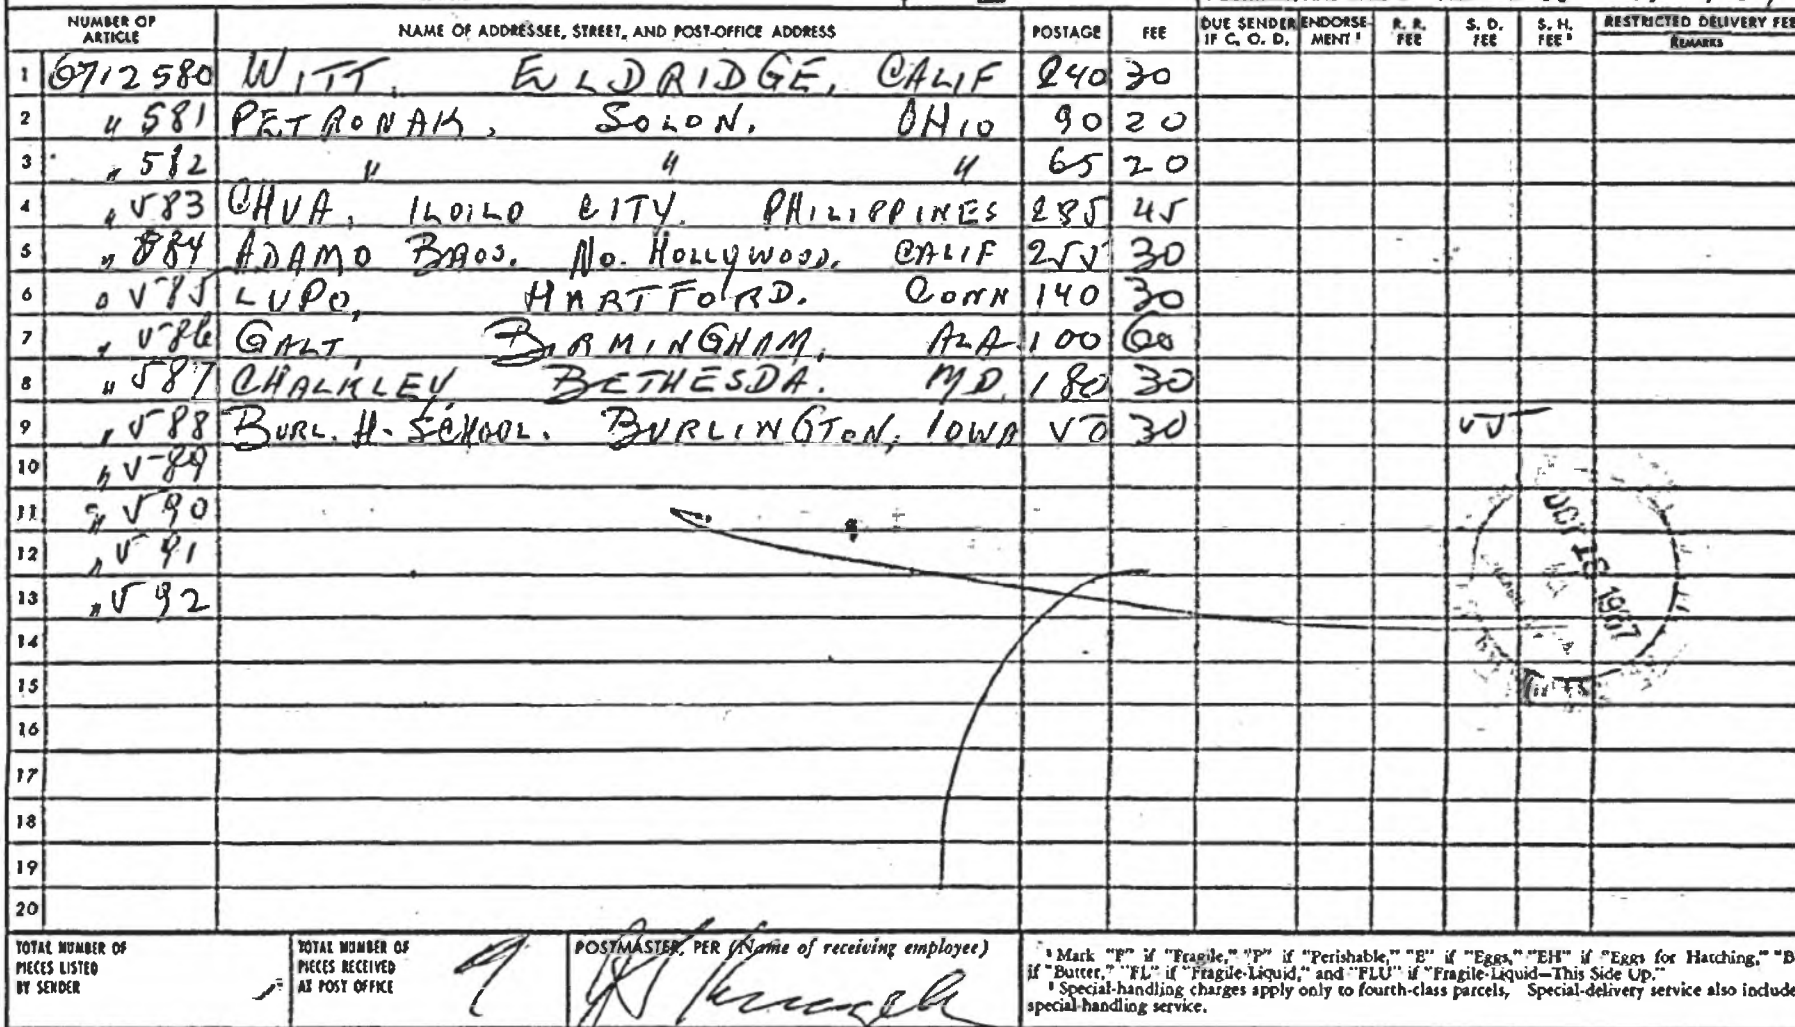 NUMBER OF ARTICLE NAME OF ADDRESSEE, STREET, AND POST-OFFICE ADDRESS POSTAGE FEE DUE SENDER IF C. O. D. ENDORSE-MENT¹ R. R. FEE S. D. FEE S. H. FEE² RESTRICTED DELIVERY FEE REMARKS
1 6712580 WITT, EULDRIDGE, CALIF 240 30
2 " 581 PETRONAK, SOLON, OHIO 90 20
3 " 582 " " " 65 20
4 " 583 CHUA, ILOILO CITY, PHILIPPINES 285 45
5 " 584 ADAMO BROS. NO. HOLLYWOOD, CALIF 255 30
6 " 585 LUPO, HARTFORD, CONN 140 30
7 " 586 GALT, BIRMINGHAM, ALA 100 60
8 " 587 CHALKLEY, BETHESDA, MD. 180 30
9 " 588 BURL. H. SCHOOL. BURLINGTON, IOWA 50 30 55
10 " 589
11 " 590
12 " 591
13 " 592
14
15
16
17
18
19
20
OCT 16 1967
TOTAL NUMBER OF PIECES LISTED BY SENDER
TOTAL NUMBER OF PIECES RECEIVED AT POST OFFICE 9
POSTMASTER, PER (Name of receiving employee)
¹ Mark "F" if "Fragile," "P" if "Perishable," "E" if "Eggs," "EH" if "Eggs for Hatching," "B
if "Butter," "FL" if "Fragile-Liquid," and "FLU" if "Fragile-Liquid—This Side Up."
² Special-handling charges apply only to fourth-class parcels, Special-delivery service also include
special-handling service.